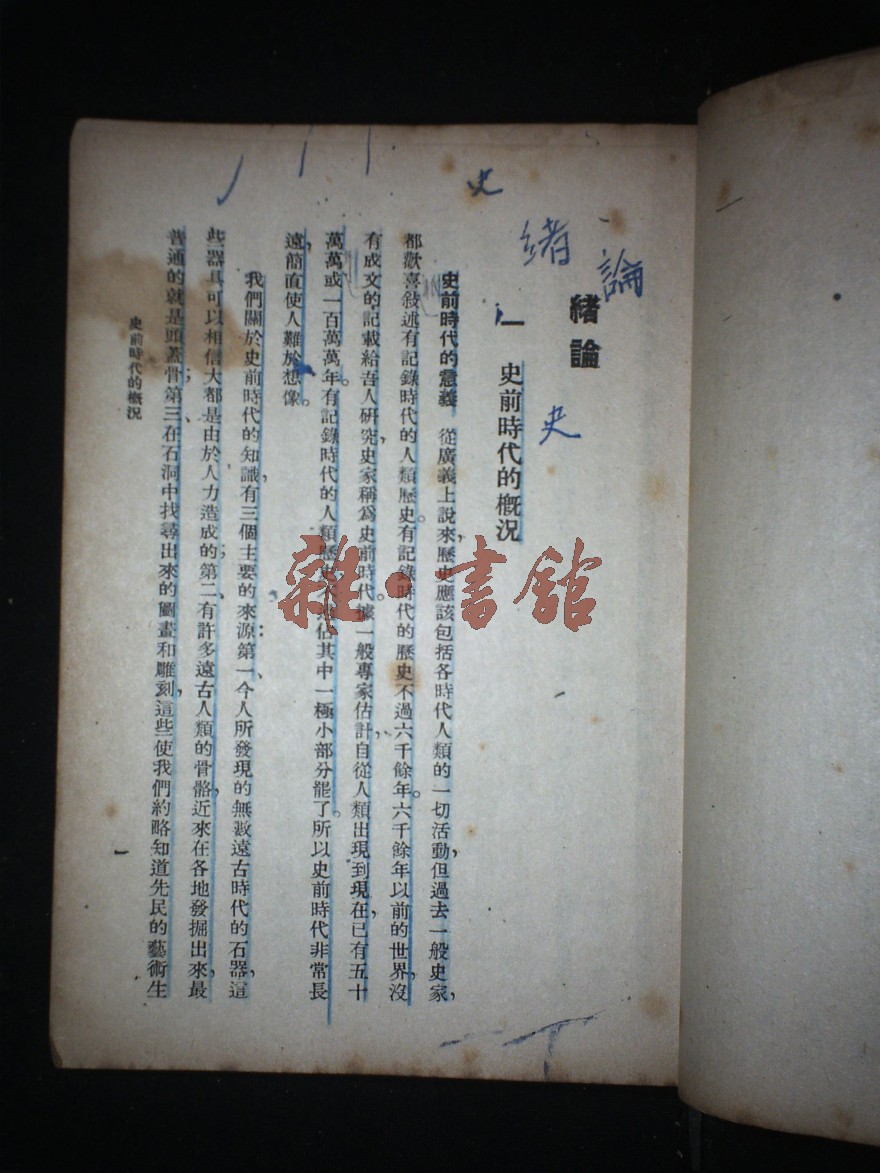 緒論
緒論
史
一 史前時代的概況
史
史前時代的意義 從廣義上說來，歷史應該包括各時代人類的一切活動，但過去一般史家，
都歡喜敍述有記錄時代的人類歷史。有記錄時代的歷史不過六千餘年。六千餘年以前的世界，沒
有成文的記載給吾人研究，史家稱爲史前時代。據一般專家估計，自從人類出現到現在，已有五十
萬萬或一百萬萬年。有記錄時代的人類歷史 估其中一極小部分罷了。所以史前時代非常長
遠，簡直使人難於想像。
我們關於史前時代的知識，有三個主要的來源：第一、今人所發現的無數遠古時代的石器，這
些器具可以相信大都是由於人力造成的；第二、有許多遠古人類的骨骼，近來在各地發掘出來，最
普通的就是頭蓋骨；第三、在石洞中找尋出來的圖畫和雕刻，這些使我們約略知道先民的藝術生
史前時代的概況
一
雜·書館